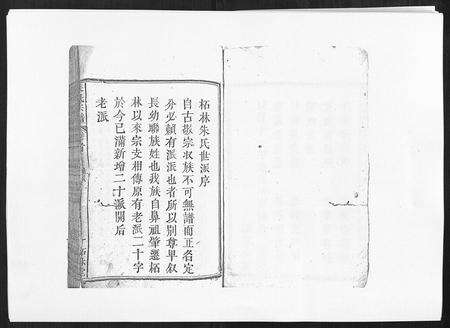 柘林朱氏世派序
自古敬宗收族不可無譜而正名定
分必賴有派派也者所以別尊卑叙
長幼聯族姓也我族自鼻祖肇遷柘
林以來宗支相傳原有老派二十字
於今已滿新增二十派開后
老派